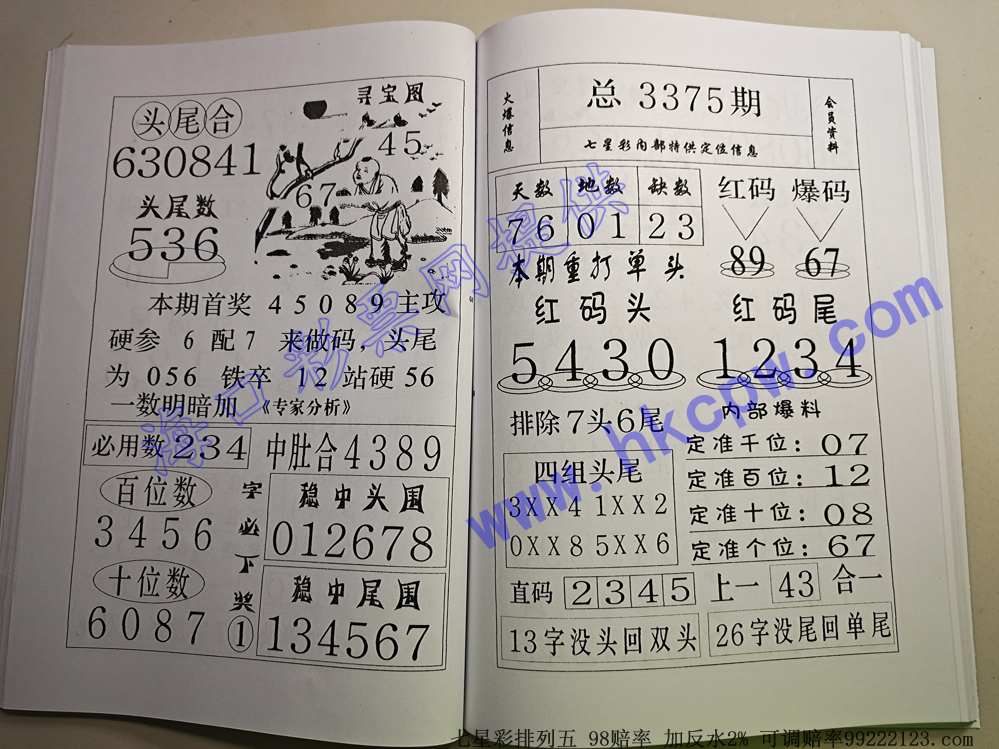 头尾合
630841
头尾数
536
寻宝图
45
67
本期首奖 45089主攻
硬参 6 配7 来做码，头尾
为 056 铁卒 12站硬56
一数明暗加 《专家分析》
必用数 234
中肚合4389
百位数
3456
十位数
6087
字必下奖①
稳中头围
012678
稳中尾围
134567
火爆信息
总 3375期
七星彩内部特供定位信息
会员资料
天数 地数 缺数
76 01 23
红码 爆码
89 67
本期重打单头
红码头
5430
红码尾
1234
排除7头6尾
四组头尾
3XX4 1XX2
0XX8 5XX6
内部爆料
定准千位：07
定准百位：12
定准十位：08
定准个位：67
直码 2345 上一 43 合一
13字没头回双头
26字没尾回单尾
海口彩票网提供
www.hkcpw.com
七星彩排列五 98赔率 加反水2% 可调赔率99222123.com